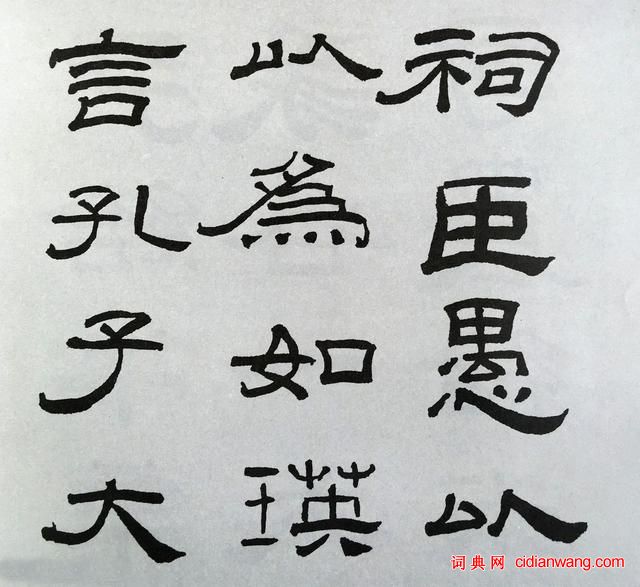 祠臣愚以
以為如瑛
言孔子大
词典网 cidianwang.com